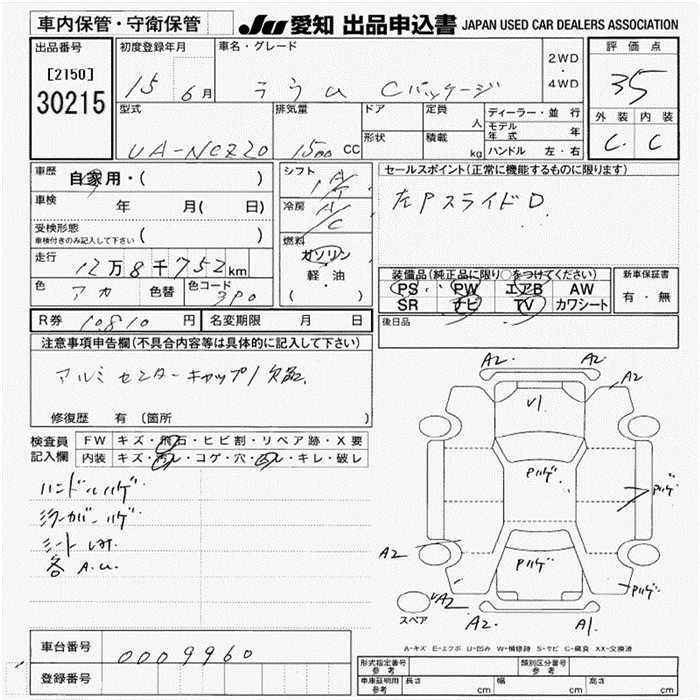 車内保管・守衛保管
JU 愛知 出品申込書 JAPAN USED CAR DEALERS ASSOCIATION
出品番号
[2150]
30215
初度登録年月
15 6月
車名・グレード
ラウム Cパッケージ
2WD
・
4WD
評価点
35
外装 内装
C. C
型式
UA-NCZ20
排気量
1500 CC
ドア
形状
定員 人
積載 kg
ディーラー・並行
モデル年式 年
ハンドル 左・右
車歴
自家用・( )
車検 年 月( 日)
受検形態
車検付きのみ記入して下さい ( )
走行
12万8千752km
色 アカ 色替 色コード 3P0
シフト A/T
冷房 A/C
燃料
ガソリン
軽・油
( )
セールスポイント(正常に機能するものに限ります)
左PスライドD
装備品(純正品に限り○をつけてください)
PS PW エアB AW
SR ナビ TV カワシート
新車保証書
有・無
後日品
R券 10,810 円 名変期限 月 日
注意事項申告欄(不具合内容等は具体的に記入して下さい)
アルミセンターキャップ1欠品.
修復歴 有 〔箇所 〕
検査員
記入欄
FW キズ・飛石・ヒビ割・リペア跡・X要
内装 キズ・汚レ・コゲ・穴・凹レ・キレ・破レ
ハンドルハゲ
ミラーカバーハゲ
シート
各 A.U.
A2. A2.
A2
V1.
Pハゲ
Pハゲ
A2
Pハゲ
A2
Pハゲ
スペア
A2. A1.
A-キズ E-エクボ U-凹み W-補修跡 S-サビ C-腐食 XX-交換済
車台番号 0009960
登録番号
形式指定番号 参考
類別区分番号 参考
車庫証明用 参考 長さ cm 幅 cm 高さ cm